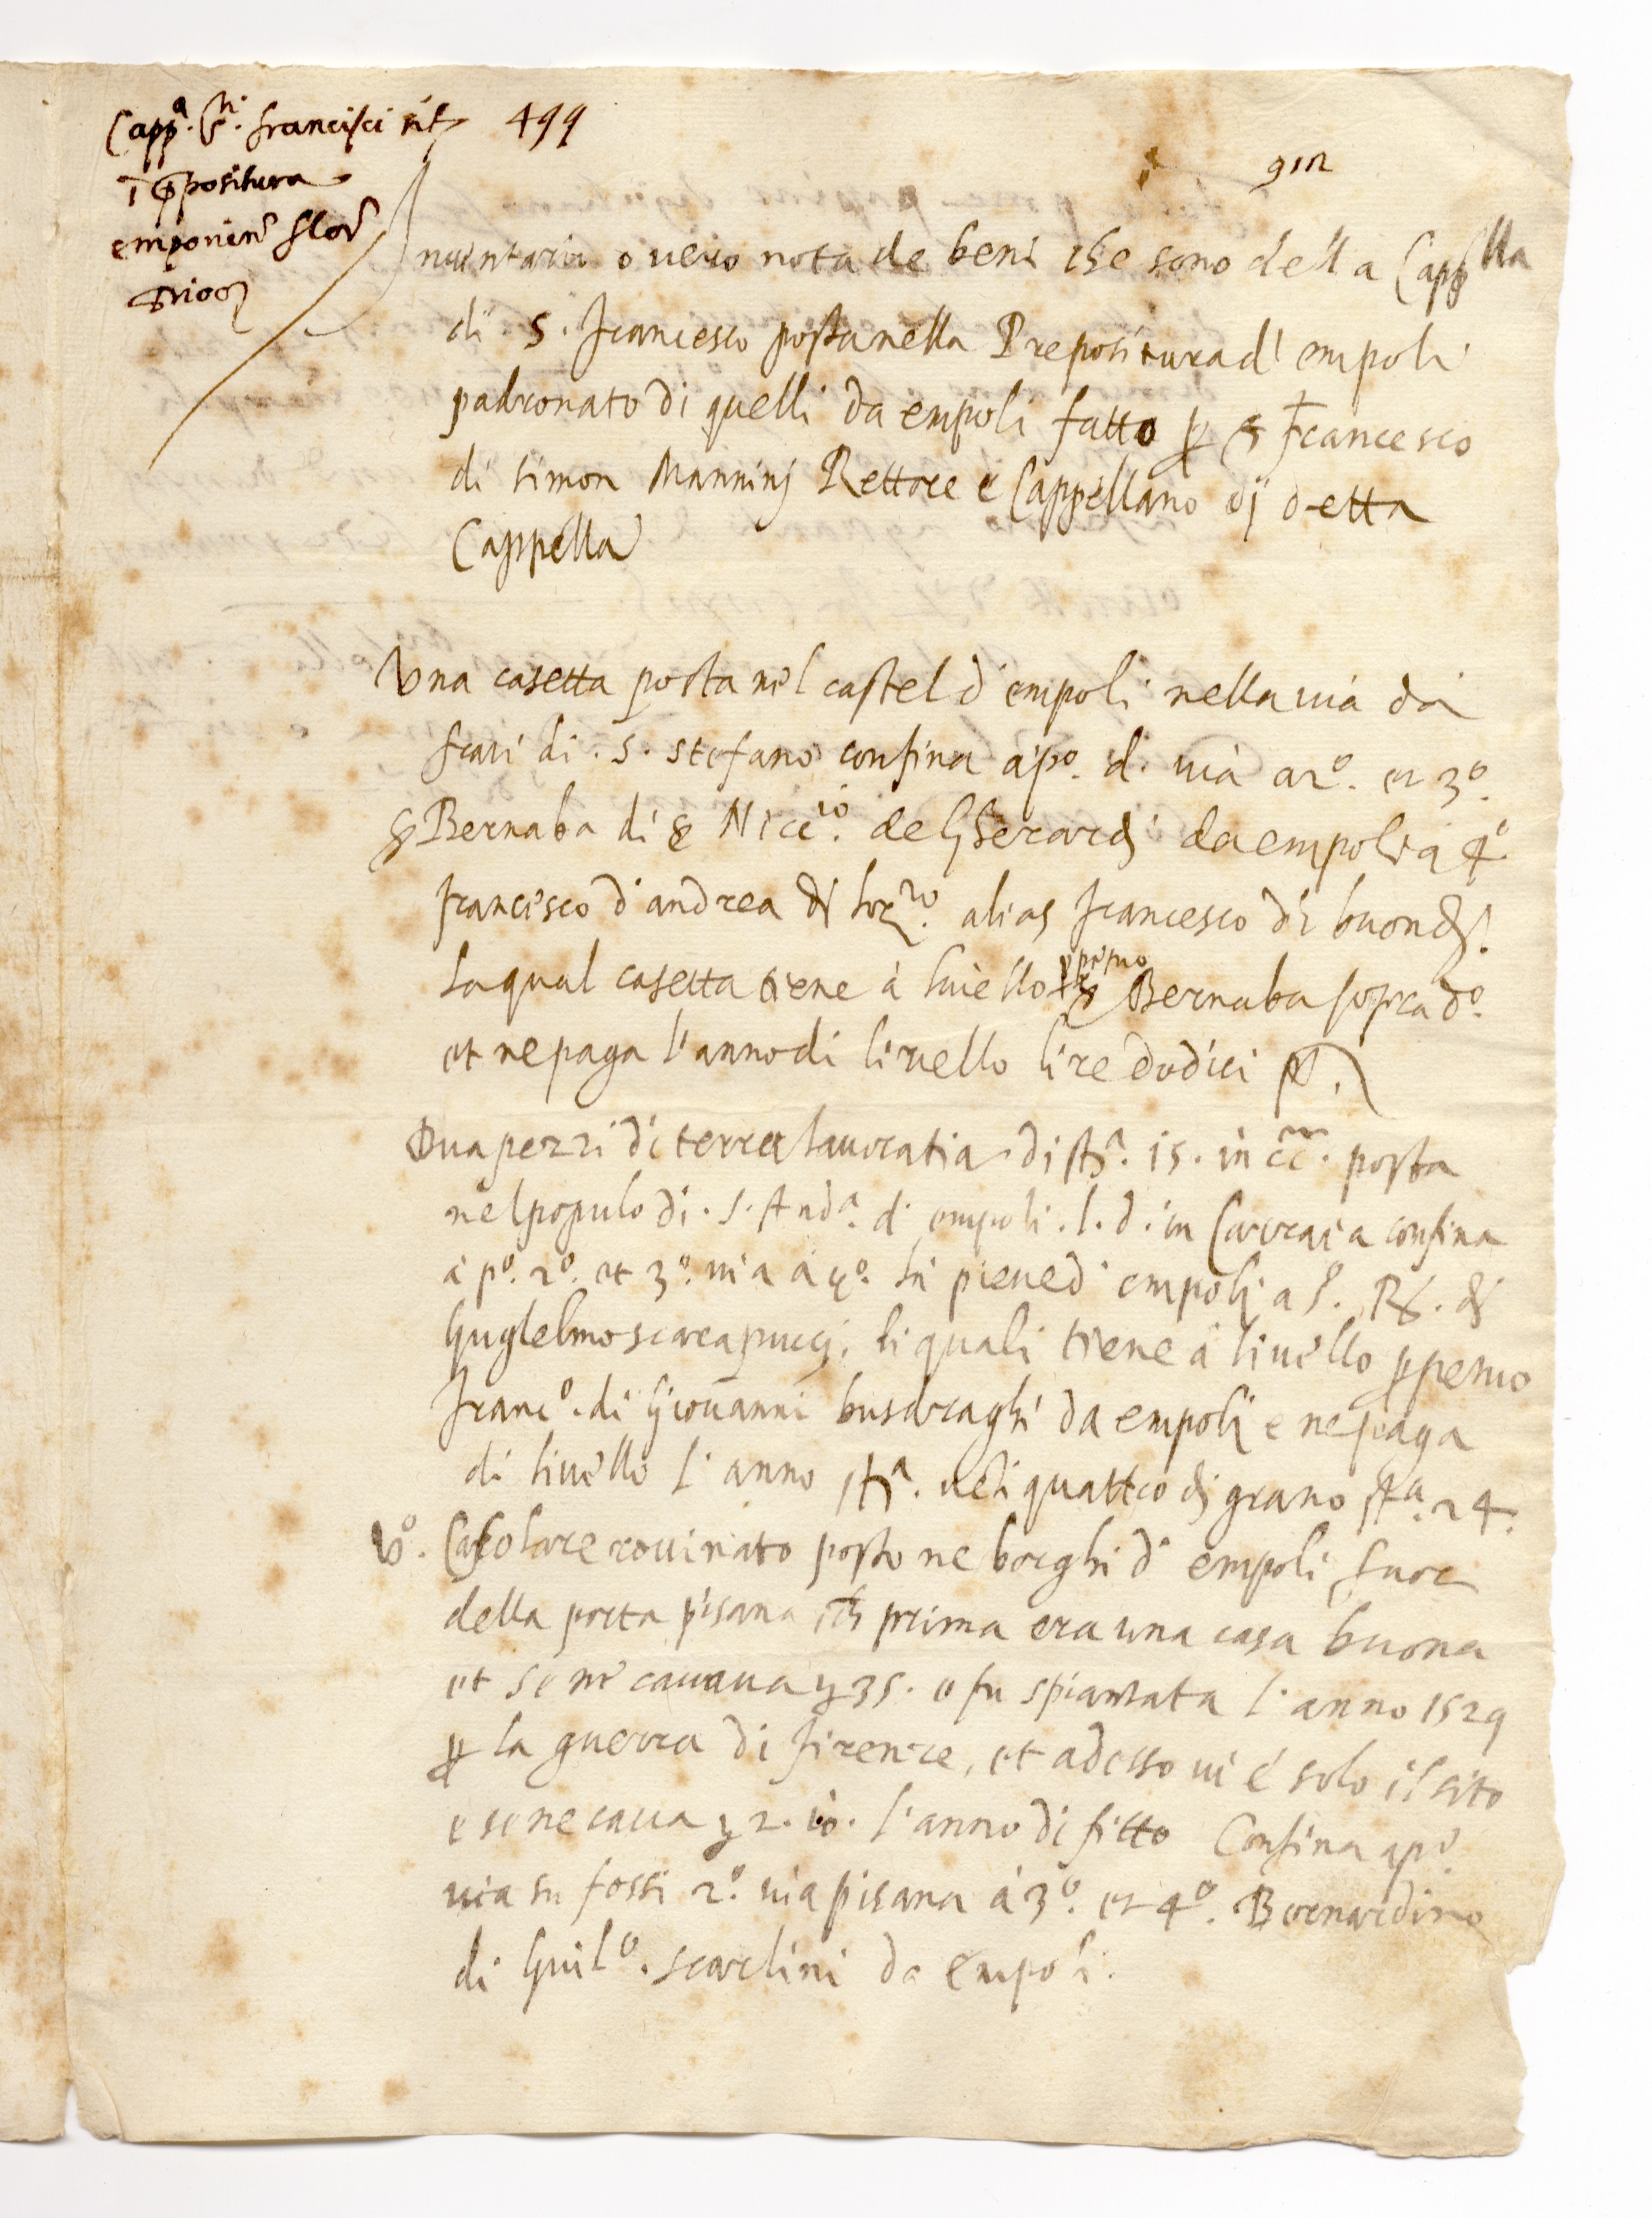 Capp.ª S.ti francisci sit. 499
i p̄positura
emponien̄ flor̄
dioc
912
Inventario overo nota de beni che sono della Capp.lla
di S. francesco posta nella Prepositura di empoli
padronato di quelli da empoli fatto ꝑ S francesco
di simon Mannini Rettore e Cappellano di detta
Cappella
Una casetta posta nel castel d'empoli nella via da
frati di .S. stefano confina à pº. d. via a 2º. et 3º.
ꝭ Bernaba di ꝭ Nicc.lò. de gherardi da empoli a 4º
francesco d'andrea di lor.zo. alias francesco di buondi.
La qual casetta tiene à livello ꝑpetuo ꝭ Bernaba sopradº.
et ne paga l'anno di livello lire dodici
Dua pezzi di terra lavoratia di stª. 15. in cc. posta
nel popolo di .S. Andª. d'empoli .l.d. in Carraia confina
à pº. 2º. et 3º. via a 4º. la pieve d'empoli a 5. Rº. di
Guglelmo scarapucci, li quali tiene à livello ꝑpetuo
francº. di Giovanni busdraghi da empoli e ne paga
di livello l'anno stª. veti quattro di grano stª. 24.
Vº. Casolare rovinato posto ne borghi d'empoli fuor
della porta pisana ch̄ prima era una casa buona
et se ne cavava ꝫ 35. e fu spiantata l'anno 1529
ꝑ la guerra di firenze, et adesso vi é solo il sito
e se ne cava ꝫ 2. 10. l'anno di fitto Confina a pº
via su fossi 2º. via pisana à 3º. et 4º. Bernardino
di Guilº. scarlini da empoli.